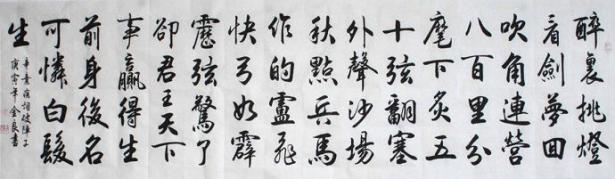 醉裏挑燈
看劍夢回
吹角連營
八百里分
麾下炙五
十弦翻塞
外聲沙場
秋點兵馬
作的盧飛
快弓如霹
靂弦驚了
卻君王天下
事贏得生
前身後名
可憐白髮
生
辛棄疾詞破陣子
庚寅年金良書